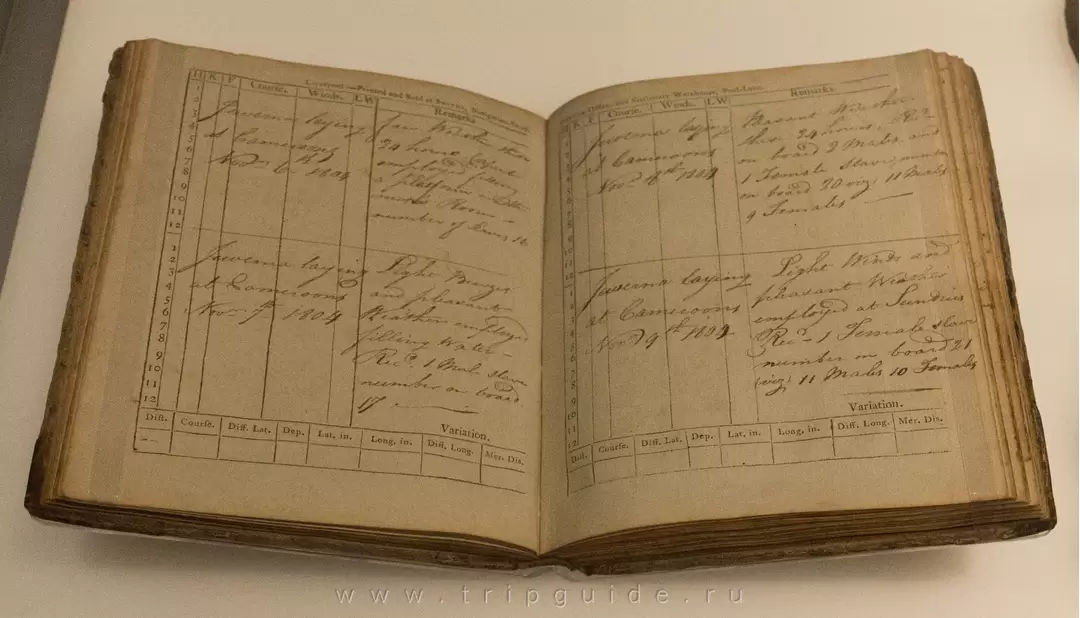 Liverpool:—Printed and Sold at
H K F Course. Winds. LW Remarks
1
2
3
4
5
6
7
8
9
10
11
12
Juverna laying
at Cameroons
Novr 6th 1804
fair Weather these
24 hours People
employed fixing
a platform in the
mens Room -
number of Slaves 16
1
2
3
4
5
6
7
8
9
10
11
12
Juverna laying
at Cameroons
Novr 7th 1804
Light Breezes
and pleasant
Weather employed
filling Water -
Recd. 1 Male slave
number on board
17
Variation.
Dist. Course. Diff. Lat. Dep. Lat. in. Long. in. Diff. Long. Mer. Dis.
Office, and Stationary Warehouse, Pool-Lane.
H K F Course. Winds. LW Remarks.
Juverna laying
at Cameroons
Novr 8th 1804
Pleasant Weather
these 24 hours, Recd
on board 2 Males and
1 Female slaves number
on board 20 viz; 11 Males
9 Females
Juverna laying
at Cameroons
Novr 9th 1804
Light Winds and
pleasant Weather
employed at Sundries
Recd - 1 Female slave
number on board 21
(viz) 11 Males 10 Females
Variation.
Dist. Course. Diff. Lat. Dep. Lat. in. Long. in. Diff. Long. Mer. Dis.
www.tripguide.ru